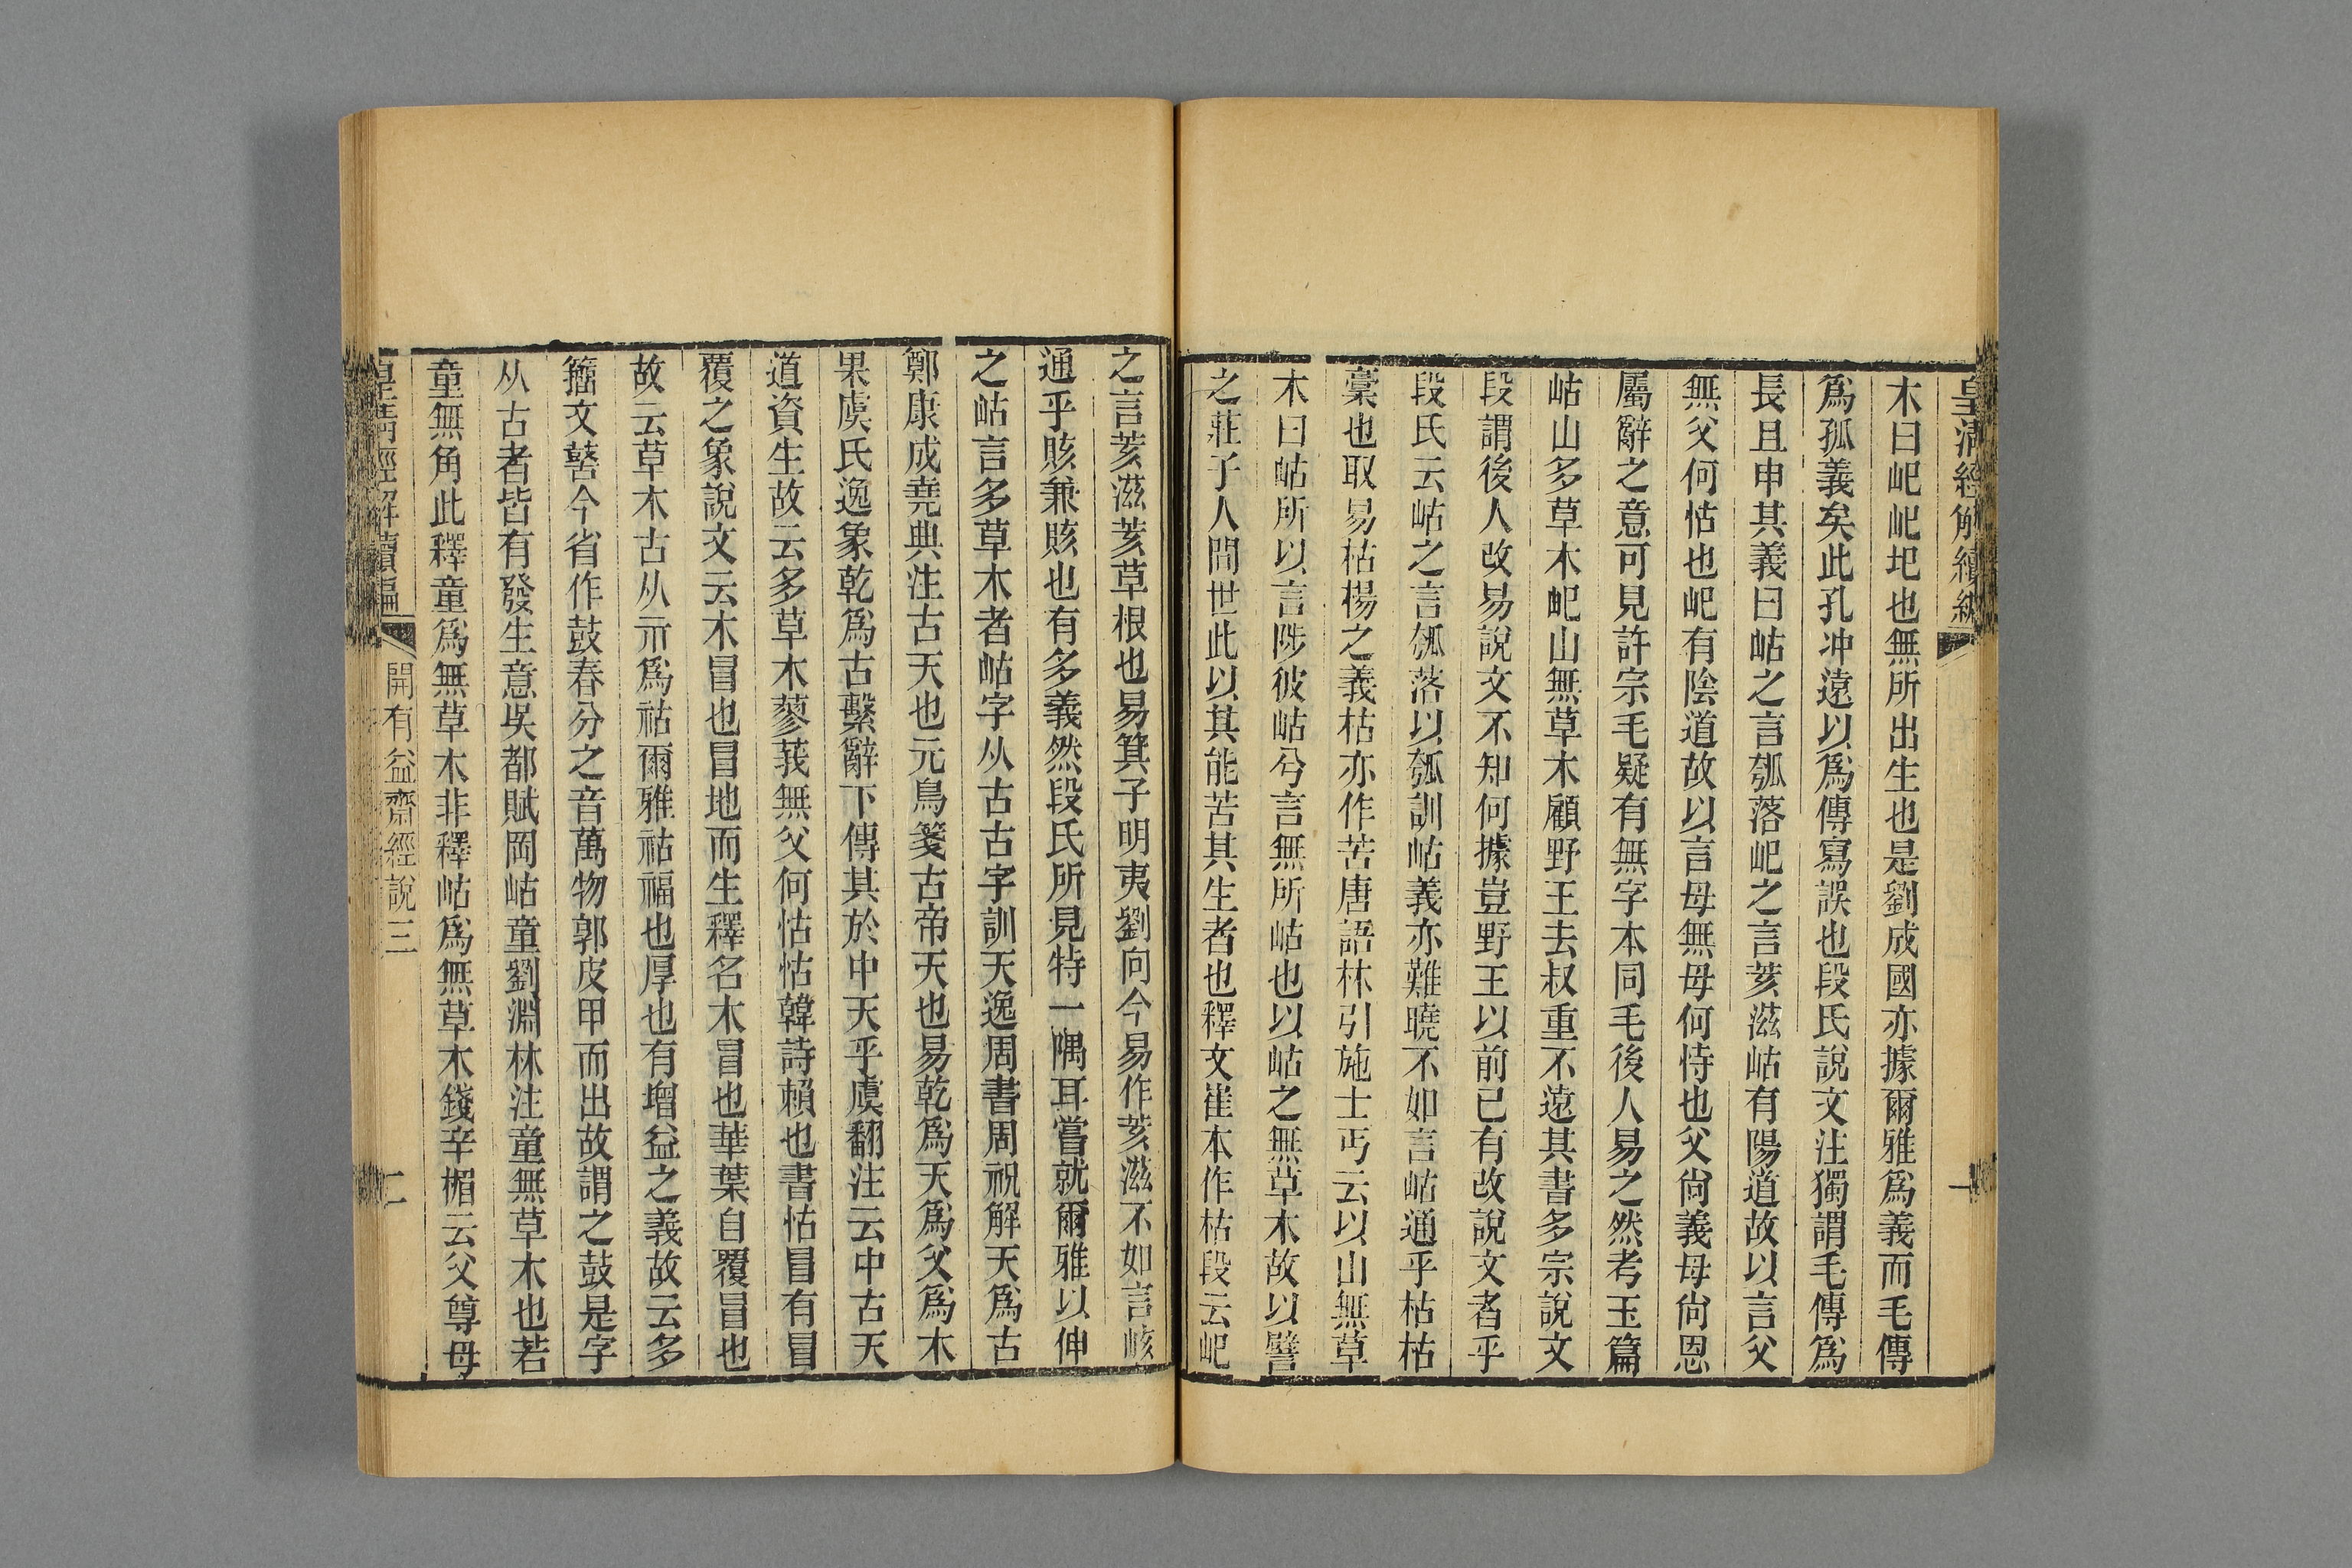 皇清經解續編
一
木曰屺屺圯也無所出生也是劉成國亦據爾雅爲義而毛傳
爲孤義矣此孔冲遠以爲傳寫誤也段氏說文注獨謂毛傳爲
長且申其義曰岵之言瓠落屺之言荄滋岵有陽道故以言父
無父何怙也屺有陰道故以言母無母何恃也父尙義母尙恩
屬辭之意可見許宗毛疑有無字本同毛後人易之然考玉篇
岵山多草木屺山無草木顧野王去叔重不遠其書多宗說文
段謂後人改易說文不知何據豈野王以前已有改說文者乎
段氏云岵之言瓠落以瓠訓岵義亦難曉不如言岵通乎枯枯
槀也取易枯楊之義枯亦作苦唐語林引施士丐云以山無草
木曰岵所以言陟彼岵兮言無所岵也以岵之無草木故以譬
之莊子人間世此以其能苦其生者也釋文崔本作枯段云屺
之言荄滋荄草根也易箕子明夷劉向今易作荄滋不如言峐
通乎賅兼賅也有多義然段氏所見特一隅耳嘗就爾雅以伸
之岵言多草木者岵字从古古字訓天逸周書周祝解天爲古
鄭康成堯典注古天也元鳥箋古帝天也易乾爲天爲父爲木
果虞氏逸象乾爲古繫辭下傳其於中天乎虞翻注云中古天
道資生故云多草木蓼莪無父何怙怙韓詩賴也書怙冒有冒
覆之象說文云木冒也冒地而生釋名木冒也華葉自覆冒也
故云草木古从示爲祜爾雅祜福也厚也有增益之義故云多
籀文鼛今省作鼓春分之音萬物郭皮甲而出故謂之鼓是字
从古者皆有發生意吳都賦岡岵童劉淵林注童無草木也若
童無角此釋童爲無草木非釋岵爲無草木錢辛楣云父尊母
皇清經解續編
開有益齋經說三
二